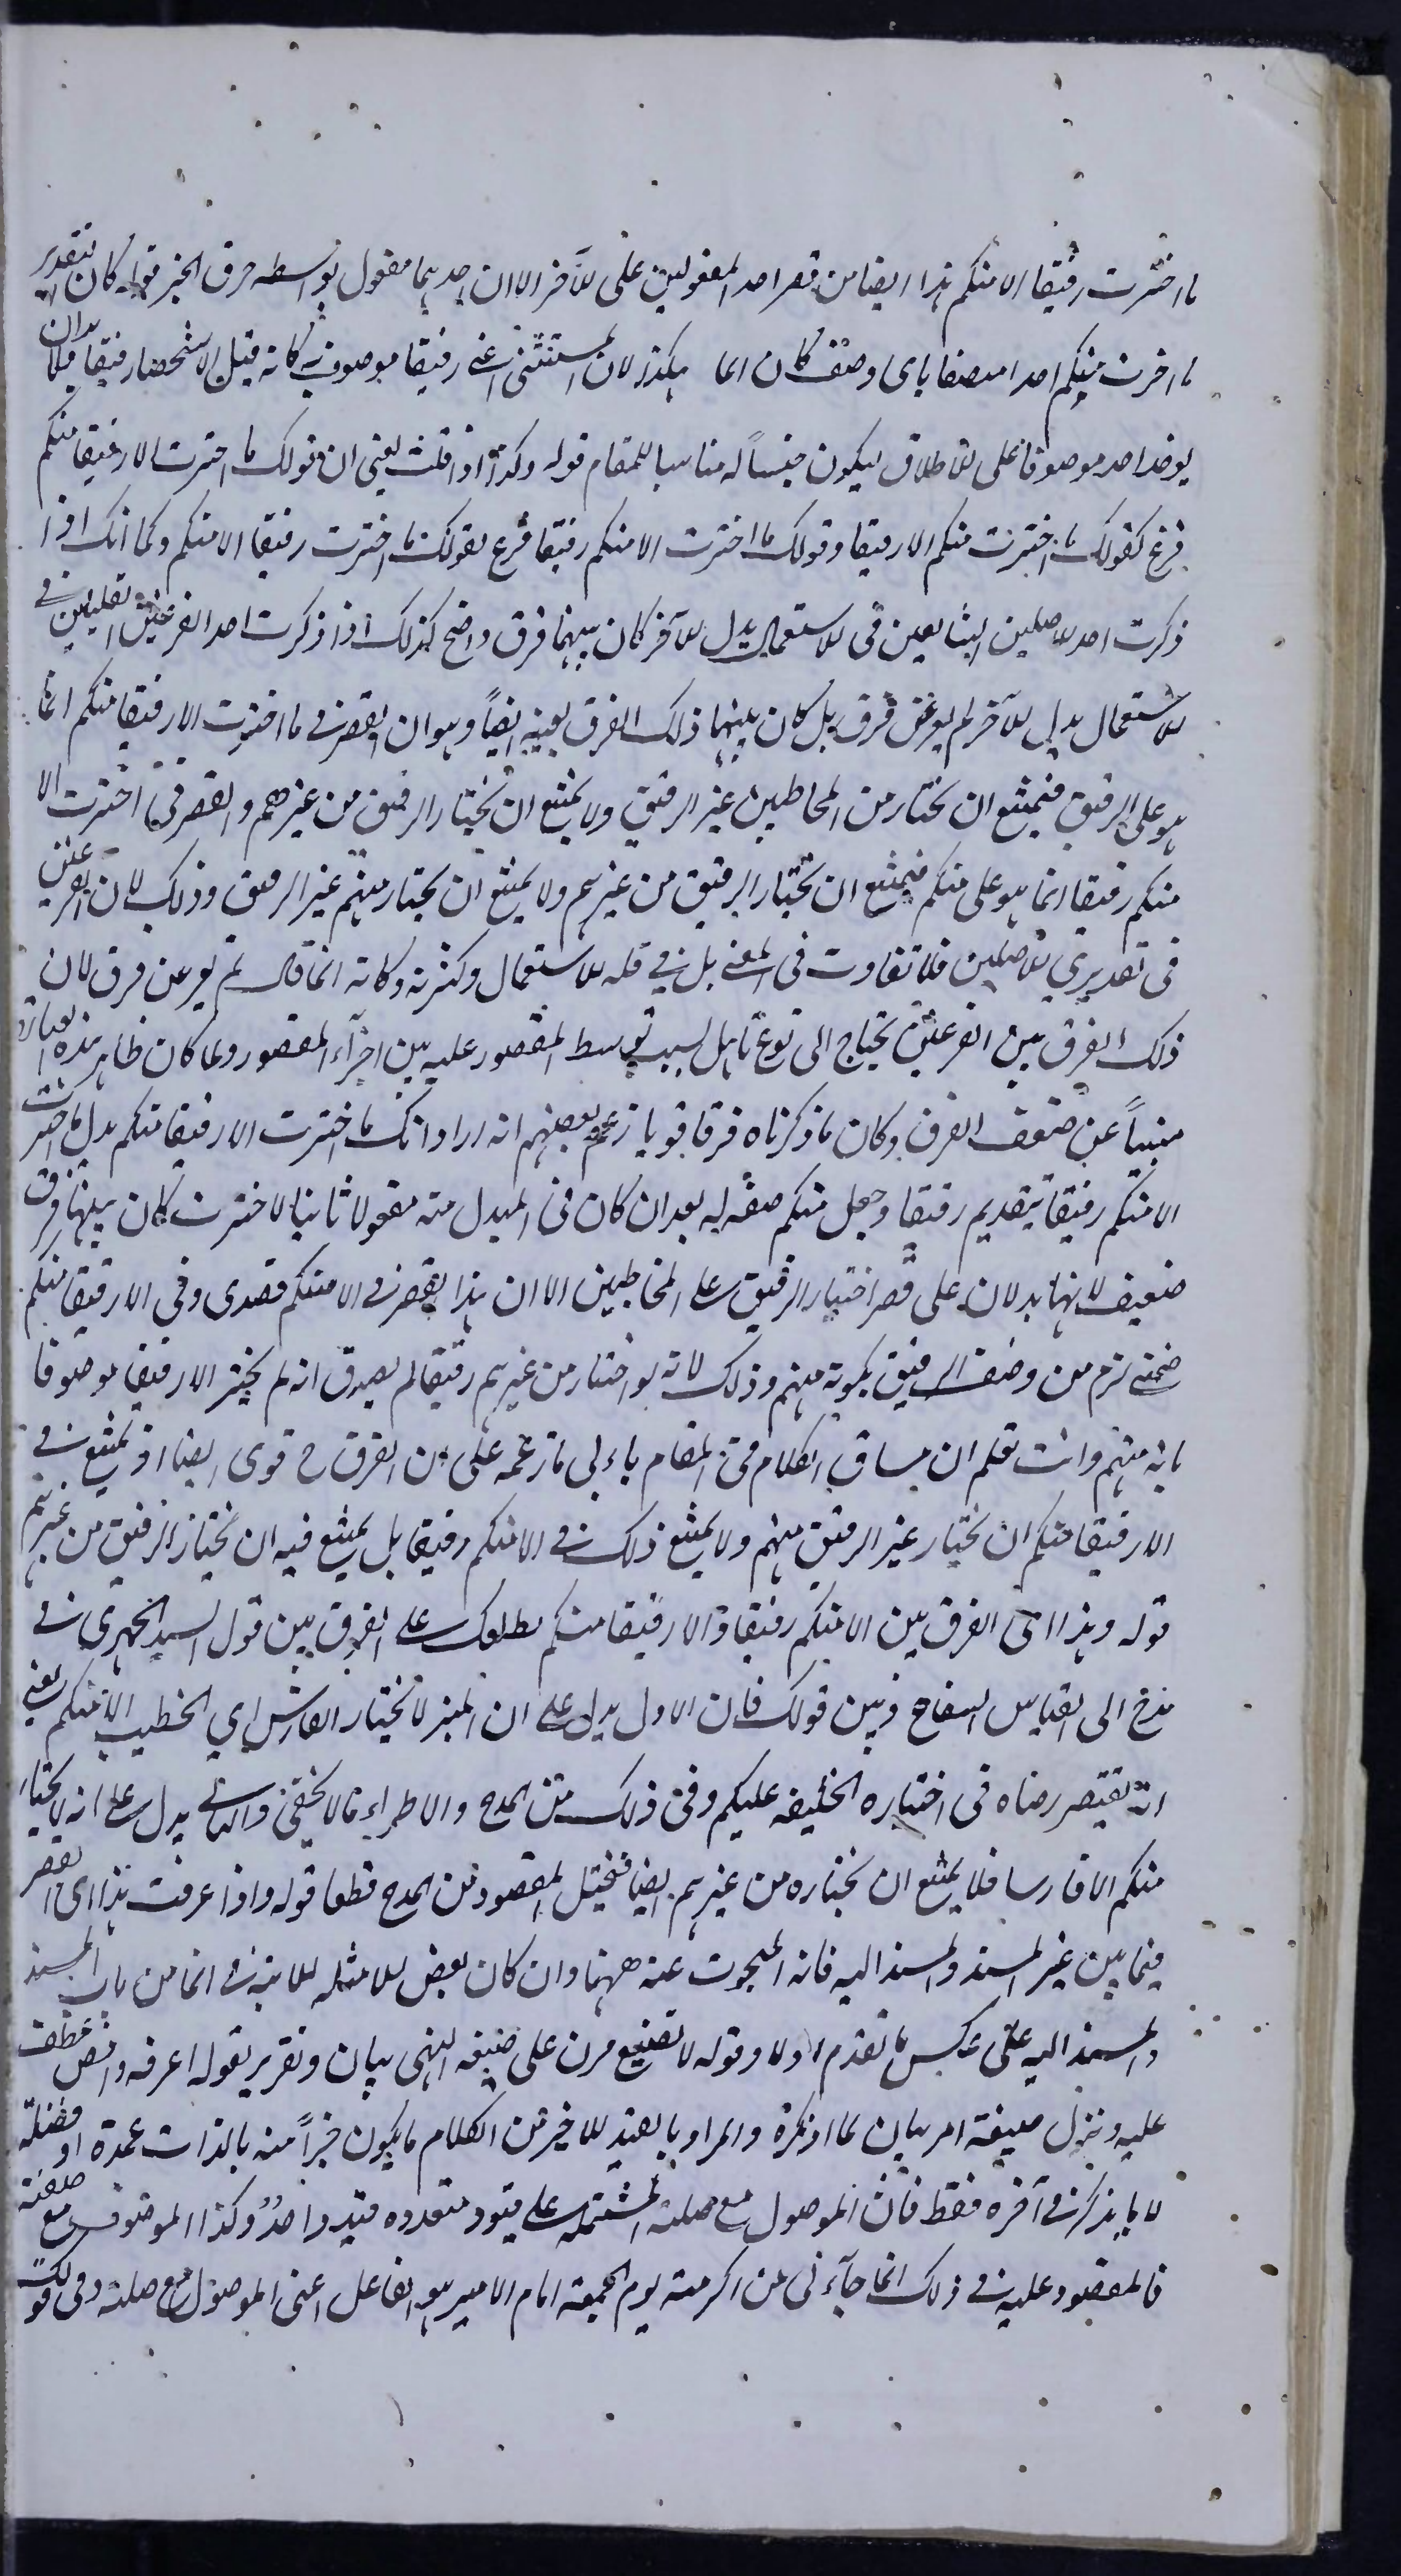 ما اخترت رفيقا الا منكم هذا ايضا من قصر احد المفعولين على الآخر الا ان احدهما مفعول بواسطة حرف الجر قوله كان التقدير
ما اخترت منكم احدا متصفا باى وصف كان انما هكذا لان المستثنى اعنى رفيقا موصوف به كانه قيل الا شخصا رفيقا فلا بد ان
يوخذ احد موصوفا على الاطلاق ليكون جنسا له مناسبا للمقام قوله وكذا اذا قلت يعنى ان قولك ما اخترت الا رفيقا منكم
فرع لقولك ما اخترت منكم الا رفيقا وقولك ما اخترت الا منكم رفيقا فرع لقولك ما اخترت رفيقا الا منكم وكما انك اذا
ذكرت احد الاصلين الشايعين فى الاستعمال بدل الآخر كان بينهما فرق واضح كذلك اذا ذكرت احد الفرعين القليلين فى
الاستعمال بدل الآخر لم يعر عن فرق بل كان بينهما ذلك الفرق بعينه ايضاً وهو ان القصر فى ما اخترت الا رفيقا منكم انما
هو على الرفيق فيمتنع ان يختار من المخاطبين غير الرفيق ولا يمتنع ان يختار الرفيق من غيرهم والقصر فى ما اخترت الا
منكم رفيقا انما هو على منكم فيمتنع ان يختار الرفيق من غيرهم ولا يمتنع ان يختار منهم غير الرفيق وذلك لان الفرعين
فى تقديرى الاصلين فلا تفاوت فى المعنى بل فى قلة الاستعمال وكثرته وكانه انما قال لم يعر عن فرق لان
ذلك الفرق بين الفرعين يحتاج الى نوع تامل لسبب توسط المقصور عليه بين اجزآء المقصور ولما كان ظاهر هذه العبارة
منبئاً عن ضعف الفرق وكان ما ذكرناه فرقا قويا زعم بعضهم انه اراد انك ما اخترت الا رفيقا منكم بدل ما اخترت
الا منكم رفيقا بتقديم رفيقا وجعل منكم صفة له بعد ان كان فى المبدل منه مفعولا ثانيا لاخترت كان بينهما فرق
ضعيف لانهما يدلان على قصر اختيار الرفيق على المخاطبين الا ان هذا القصر فى الا منكم قصدى وفى الا رفيقا منكم
ضمنى لزم من وصف الرفيق بكونه منهم وذلك لانه لو اختار من غيرهم رفيقا لم يصدق انه لم يختر الا رفيقا موصوفا
بانه منهم وانت تعلم ان مساق الكلام فى المقام يابى ما زعمه على ان الفرق ح قوى ايضا اذ يمتنع فى
الا رفيقا منكم ان يختار غير الرفيق منهم ولا يمتنع ذلك فى الا منكم رفيقا بل يمتنع فيه ان يختار الرفيق من غيرهم
قوله وهذا اى الفرق بين الا منكم رفيقا والا رفيقا منكم يطلعك على الفرق بين قول السيد الحميرى فى
مدح ابى العباس السفاح وبين قولك فان الاول يدل على ان المنبر لا يختار الفارس اي الخطيب الا منكم يعنى
انه يقتصر رضاه فى اختياره الخليفه عليكم وفى ذلك من المدح والاطراء ما لا يخفى والثانى يدل على انه لا يختار
منكم الا فارسا فلا يمتنع ان يختاره من غيرهم ايضا فيختل المقصود من المدح قطعا قوله واذا عرفت هذا اى القصر
فيما بين غير المسند والمسند اليه فانه المبحوث عنه ههنا وان كان بعض الامثله الاتية فى انما من باب المسند
والمسند اليه على عكس ما تقدم اولا وقوله لا تصنيع مرن على صيغه النهى بيان وتقرير لقوله اعرفه وانص عطف
عليه ونزل صيغة امر بيان لما اذكره والمراد بالقيد الاخير من الكلام ما يكون جزأً منه بالذات عمدة او فضلة
لا ما يذكر فى آخره فقط فان الموصول مع صلته المشتمله على قيود متعدده قيد واحدٌ وكذا الموصوف مع صفته
فالمقصود عليه فى ذلك انما جآءنى من اكرمته يوم الجمعة امام الامير هو الفاعل اعنى الموصول مع صلته وفى قولك